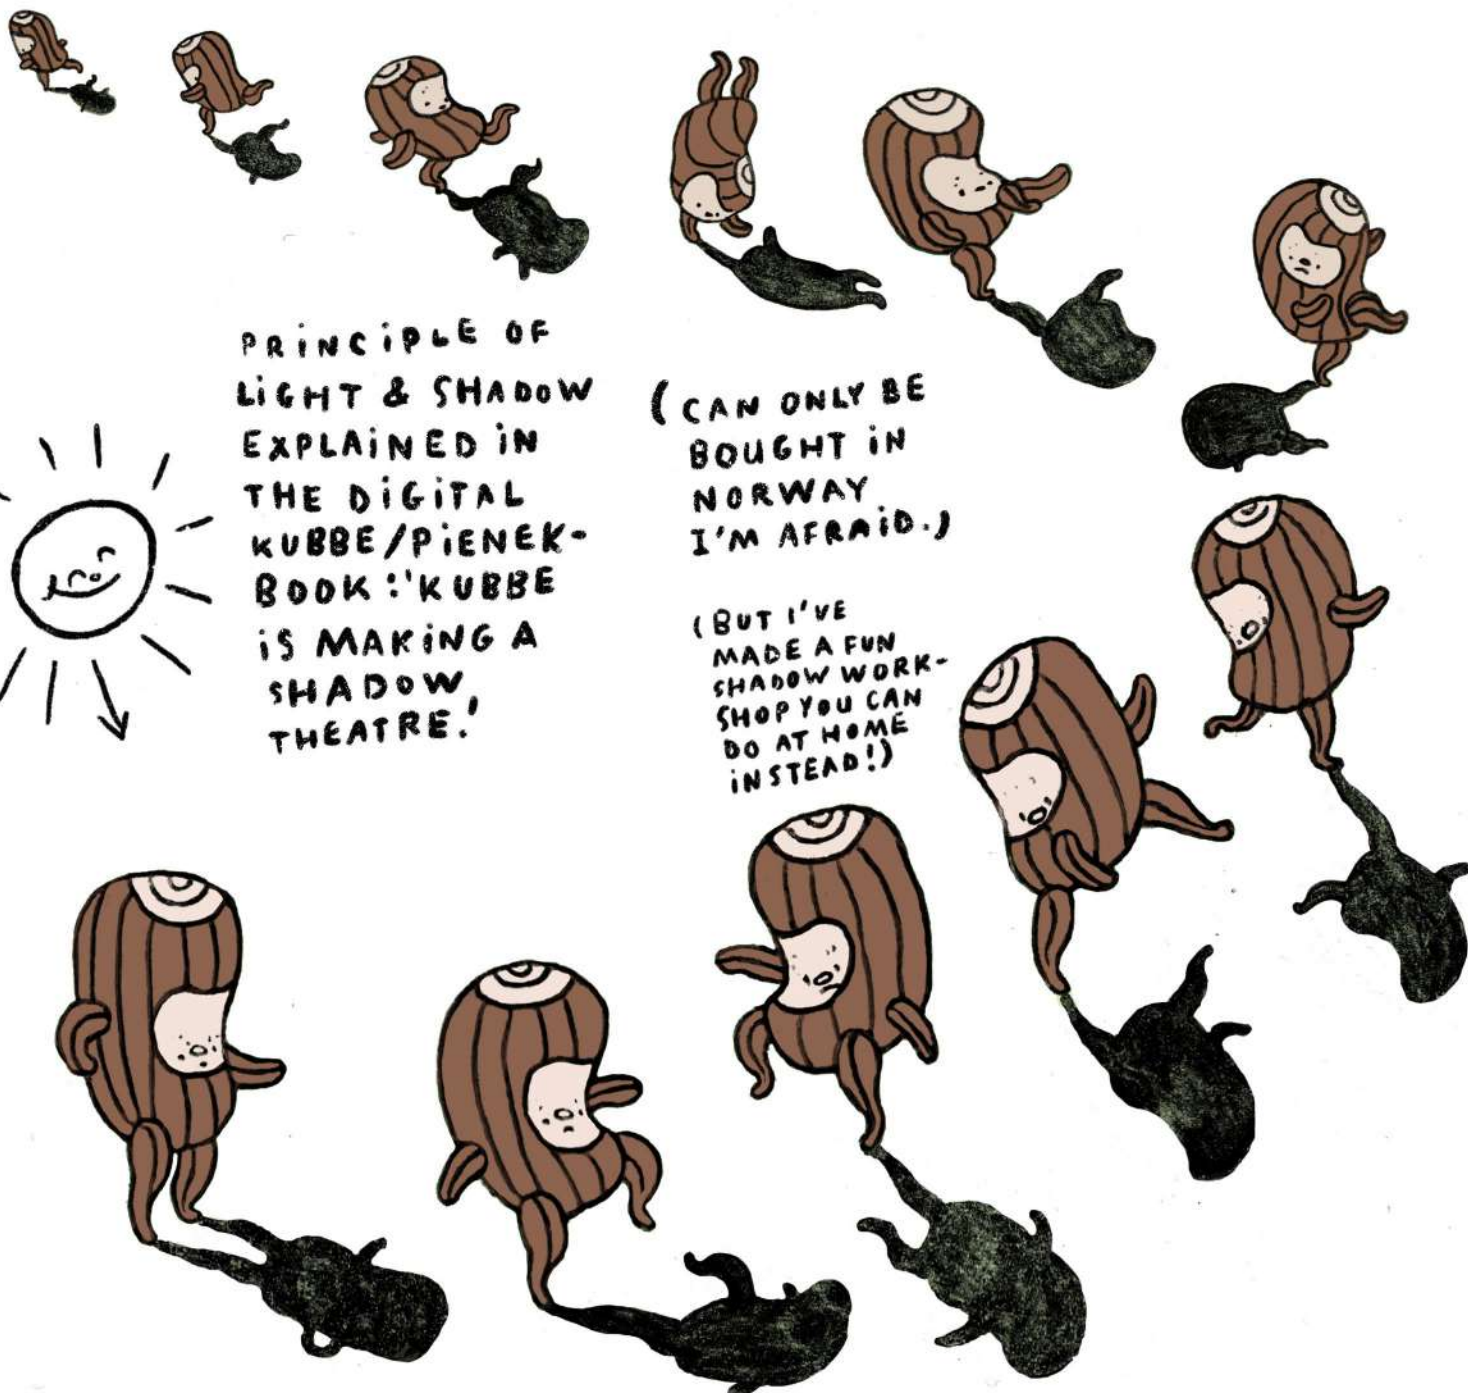 PRiNCiPLE OF
LiGHT & SHADOW
EXPLAiNED iN
THE DiGiTAL
KUBBE/PiENEK-
BOOK:'KUBBE
iS MAKiNG A
SHADOW
THEATRE.'
(CAN ONLY BE
BOUGHT iN
NORWAY
I'M AFRAiD.)
(BUT I'VE
MADE A FUN
SHADOW WORK-
SHOP YOU CAN
DO AT HOME
iNSTEAD!)